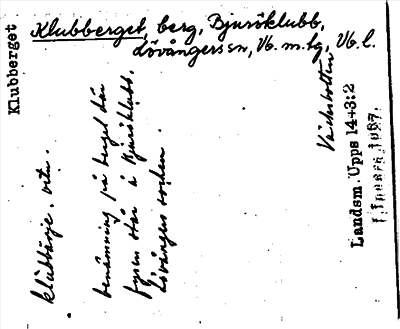 Klubberget
Klubberget, berg, Bjuröklubb,
Lövångers sn, Vb. m. tg, Vb. l.
benämning på berget där
fyren står å Bjuröklubb,
Lövångers socken.
Västerbotten
Landsm. Upps 14+3:2